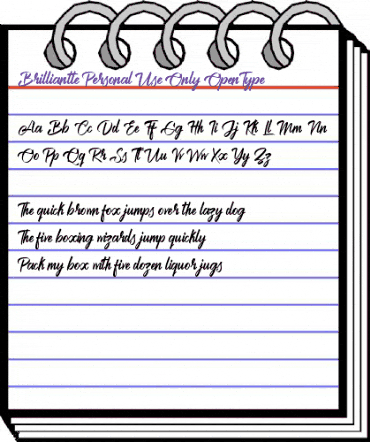 Brilliantte Personal Use Only OpenType
Aa Bb Cc Dd Ee Ff Gg Hh Ii Jj Kk Ll Mm Nn
Oo Pp Qq Rr Ss Tt Uu Vv Ww Xx Yy Zz
The quick brown fox jumps over the lazy dog
The five boxing wizards jump quickly
Pack my box with five dozen liquor jugs